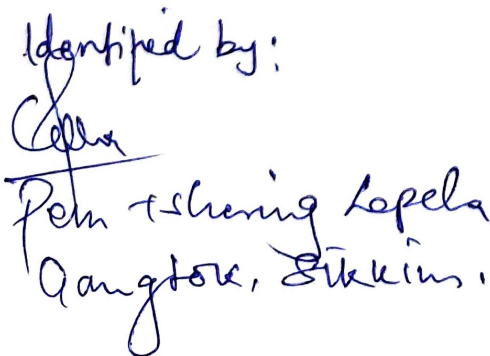 Identified by:
Pem Tshering Lepcha
Gangtok, Sikkim.